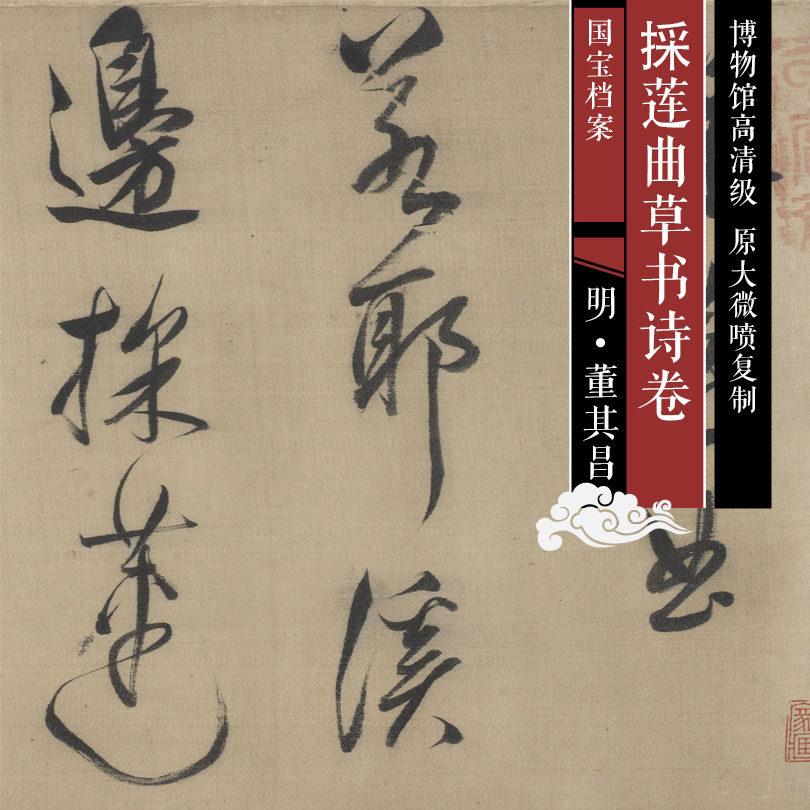 博物馆高清级 原大微喷复制
採莲曲草书诗卷
国宝档案
明·董其昌
曲
若耶溪
邊採蓮